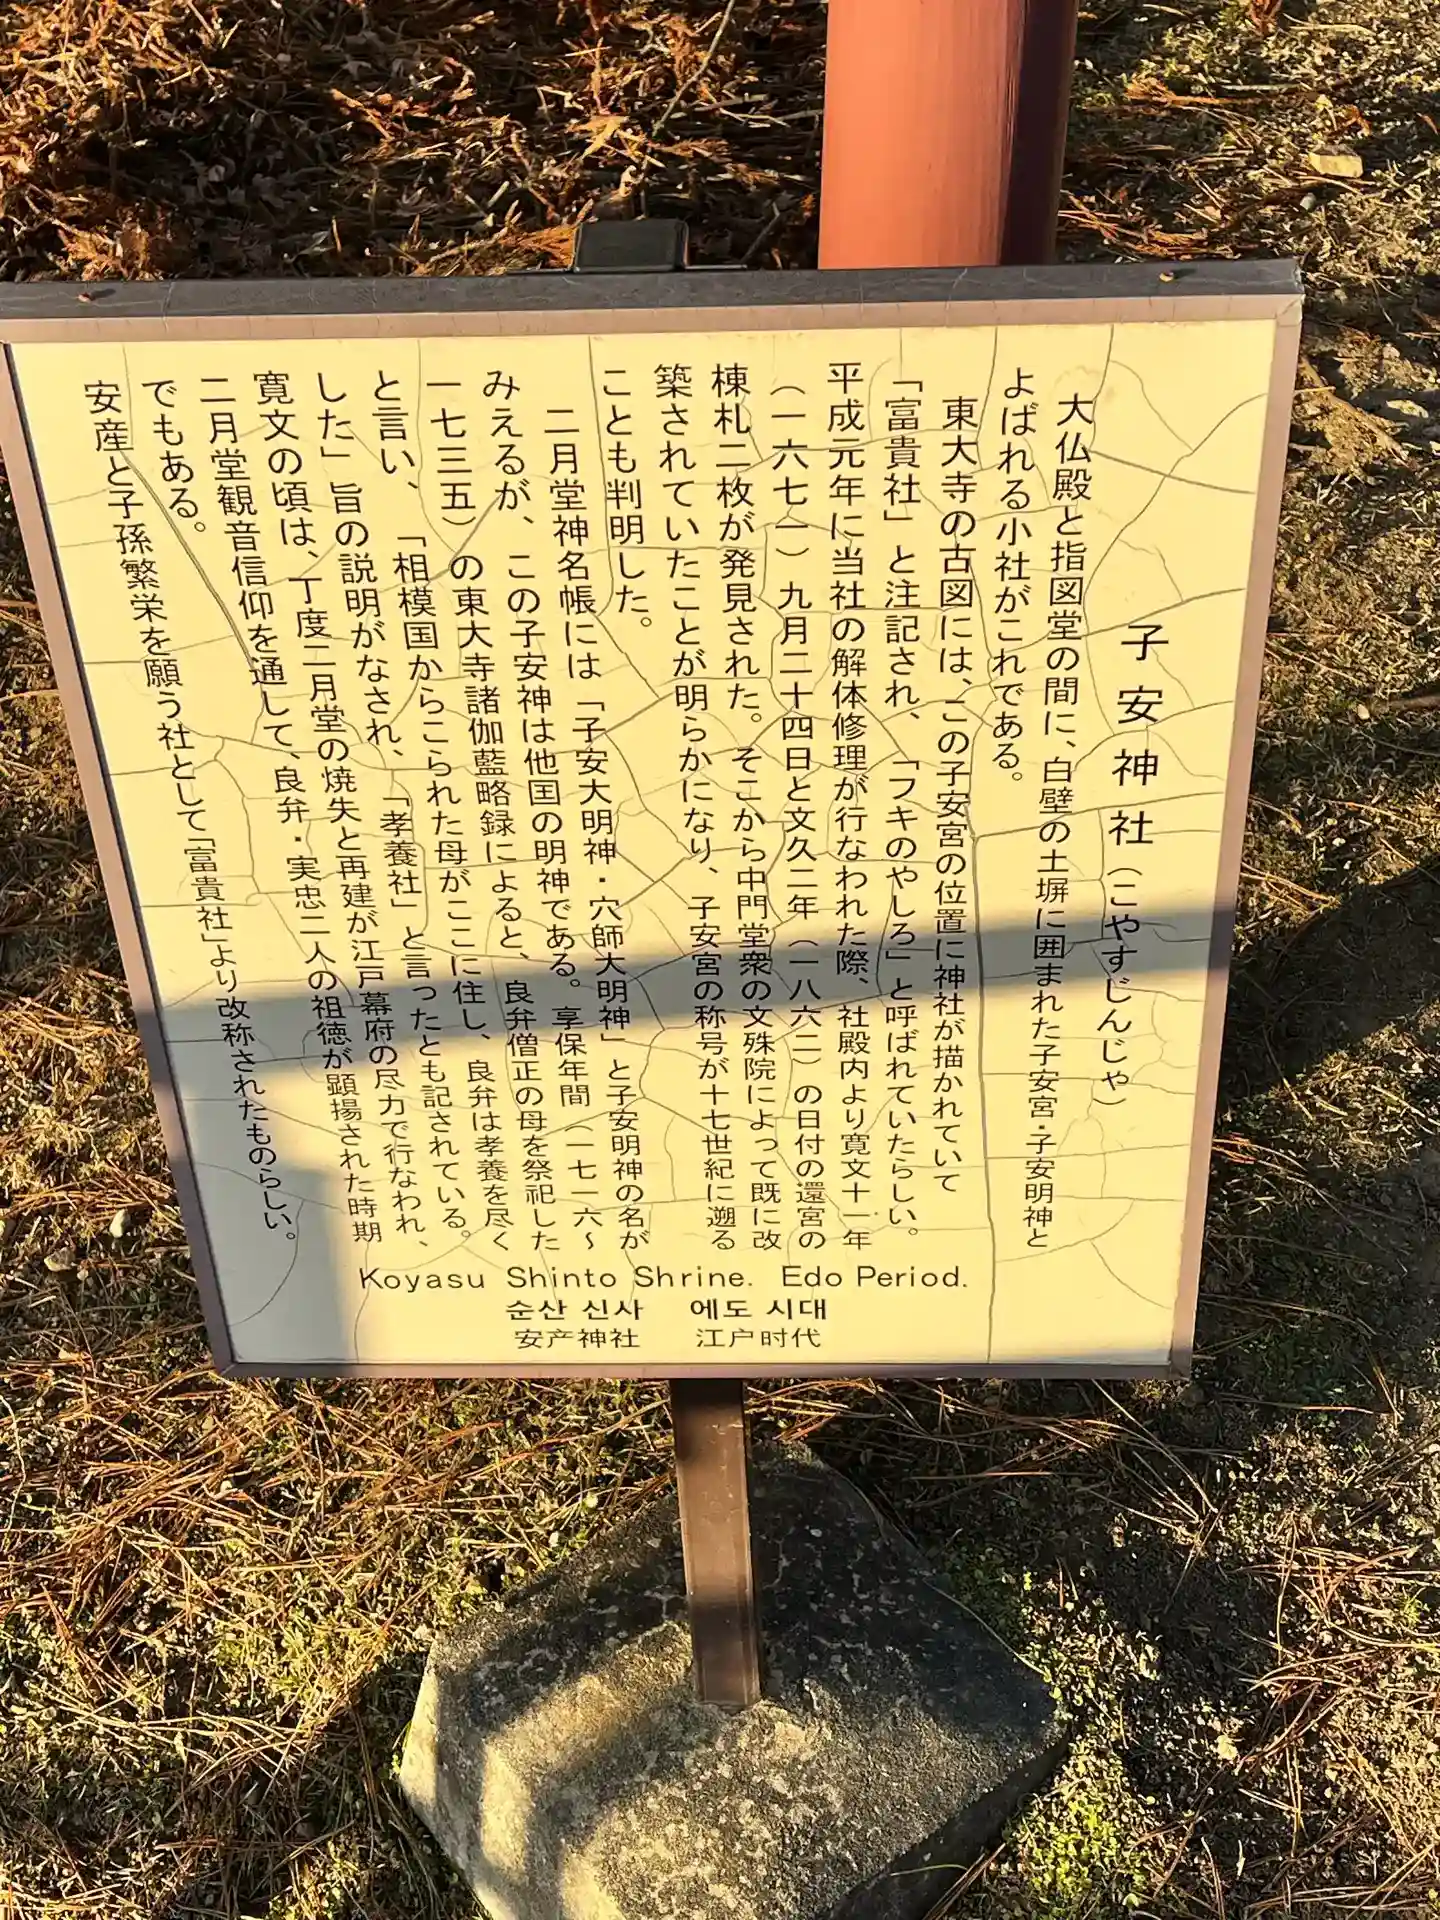 子安神社(こやすじんじゃ)
大仏殿と指図堂の間に、白壁の土塀に囲まれた子安宮・子安明神と
よばれる小社がこれである。
東大寺の古図には、この子安宮の位置に神社が描かれていて
「富貴社」と注記され、「フキのやしろ」と呼ばれていたらしい。
平成元年に当社の解体修理が行なわれた際、社殿内より寛文十一年
(一六七一)九月二十四日と文久二年(一八六二)の日付の還宮の
棟札二枚が発見された。そこから中門堂衆の文殊院によって既に改
築されていたことが明らかになり、子安宮の称号が十七世紀に遡る
ことも判明した。
二月堂神名帳には「子安大明神・穴師大明神」と子安明神の名が
みえるが、この子安神は他国の明神である。享保年間(一七一六~
一七三五)の東大寺諸伽藍略録によると、良弁僧正の母を祭祀した
と言い、「相模国からこられた母がここに住し、良弁は孝養を尽く
した」旨の説明がなされ、「孝養社」と言ったとも記されている。
寛文の頃は、丁度二月堂の焼失と再建が江戸幕府の尽力で行なわれ、
二月堂観音信仰を通して、良弁・実忠二人の祖徳が顕揚された時期
でもある。
安産と子孫繁栄を願う社として「富貴社」より改称されたものらしい。
Koyasu Shinto Shrine. Edo Period.
순산 신사 에도 시대
安产神社 江户时代